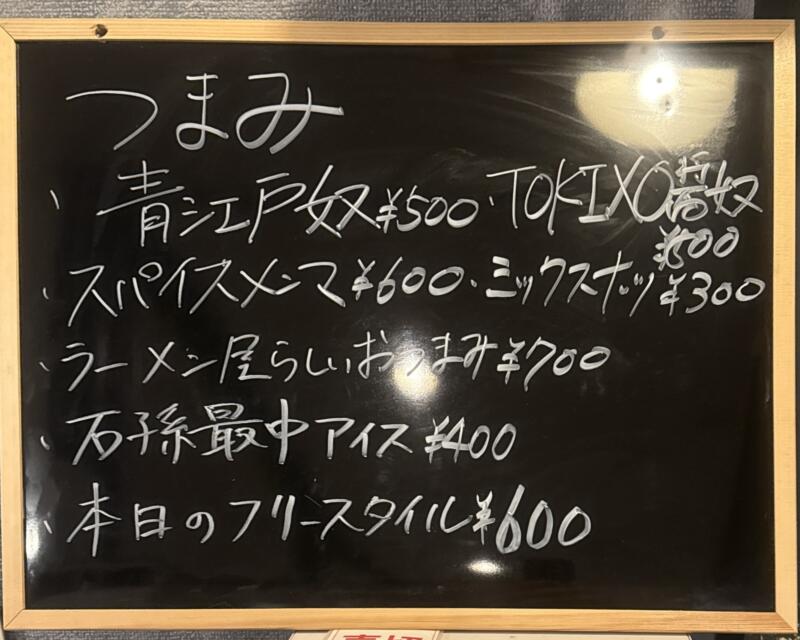 つまみ
・青江戸奴¥500・TOKIXO蕃奴
¥500
・スパイスメンマ¥600・ミックスナッツ¥300
・ラーメン屋らしいおつまみ¥700
・石孫最中アイス¥400
・本日のフリースタイル¥600